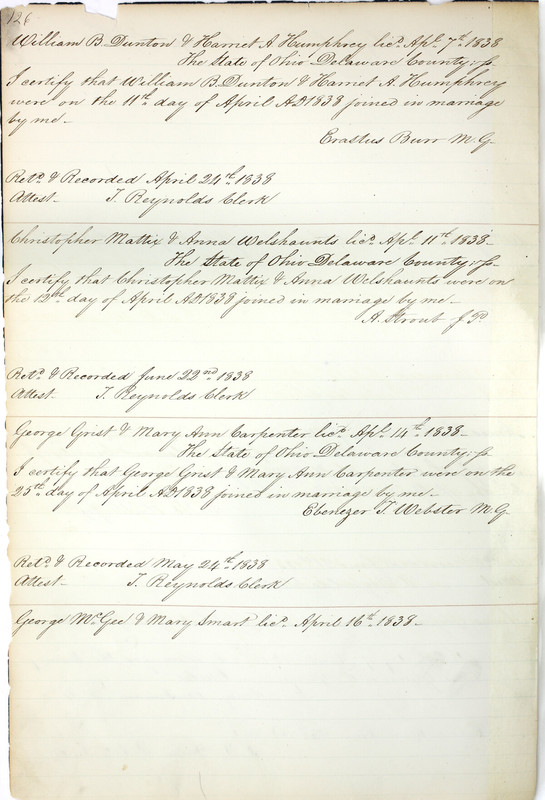 126
William B. Dunton & Harriet A Humphrey licd. Apl. 7th. 1838
The State of Ohio Delaware County, ss.
I certify that William B. Dunton & Harriet A. Humphrey
were on the 11th day of April AD 1838 joined in marriage
by me–
Erastus Burr M.G.
Retd. & Recorded April 24th. 1838
Attest– T. Reynolds Clerk
Christopher Mattix & Anna Welshaunts licd. Apl. 11th. 1838–
The State of Ohio Delaware County, ss.
I certify that Christopher Mattix & Anna Welshaunts were on
the 12th day of April AD 1838 joined in marriage by me–
A. Stroub J.P.
Retd. & Recorded June 22nd. 1838
Attest– T. Reynolds Clerk
George Grist & Mary Ann Carpenter licd. Apl. 14th. 1838–
The State of Ohio Delaware County, ss.
I certify that George Grist & Mary Ann Carpenter were on the
25th. day of April AD 1838 joined in marriage by me–
Ebenezer T. Webster M.G.
Retd. & Recorded May 24th. 1838
Attest– T. Reynolds Clerk
George McGee & Mary Smart licd. April 16th. 1838–